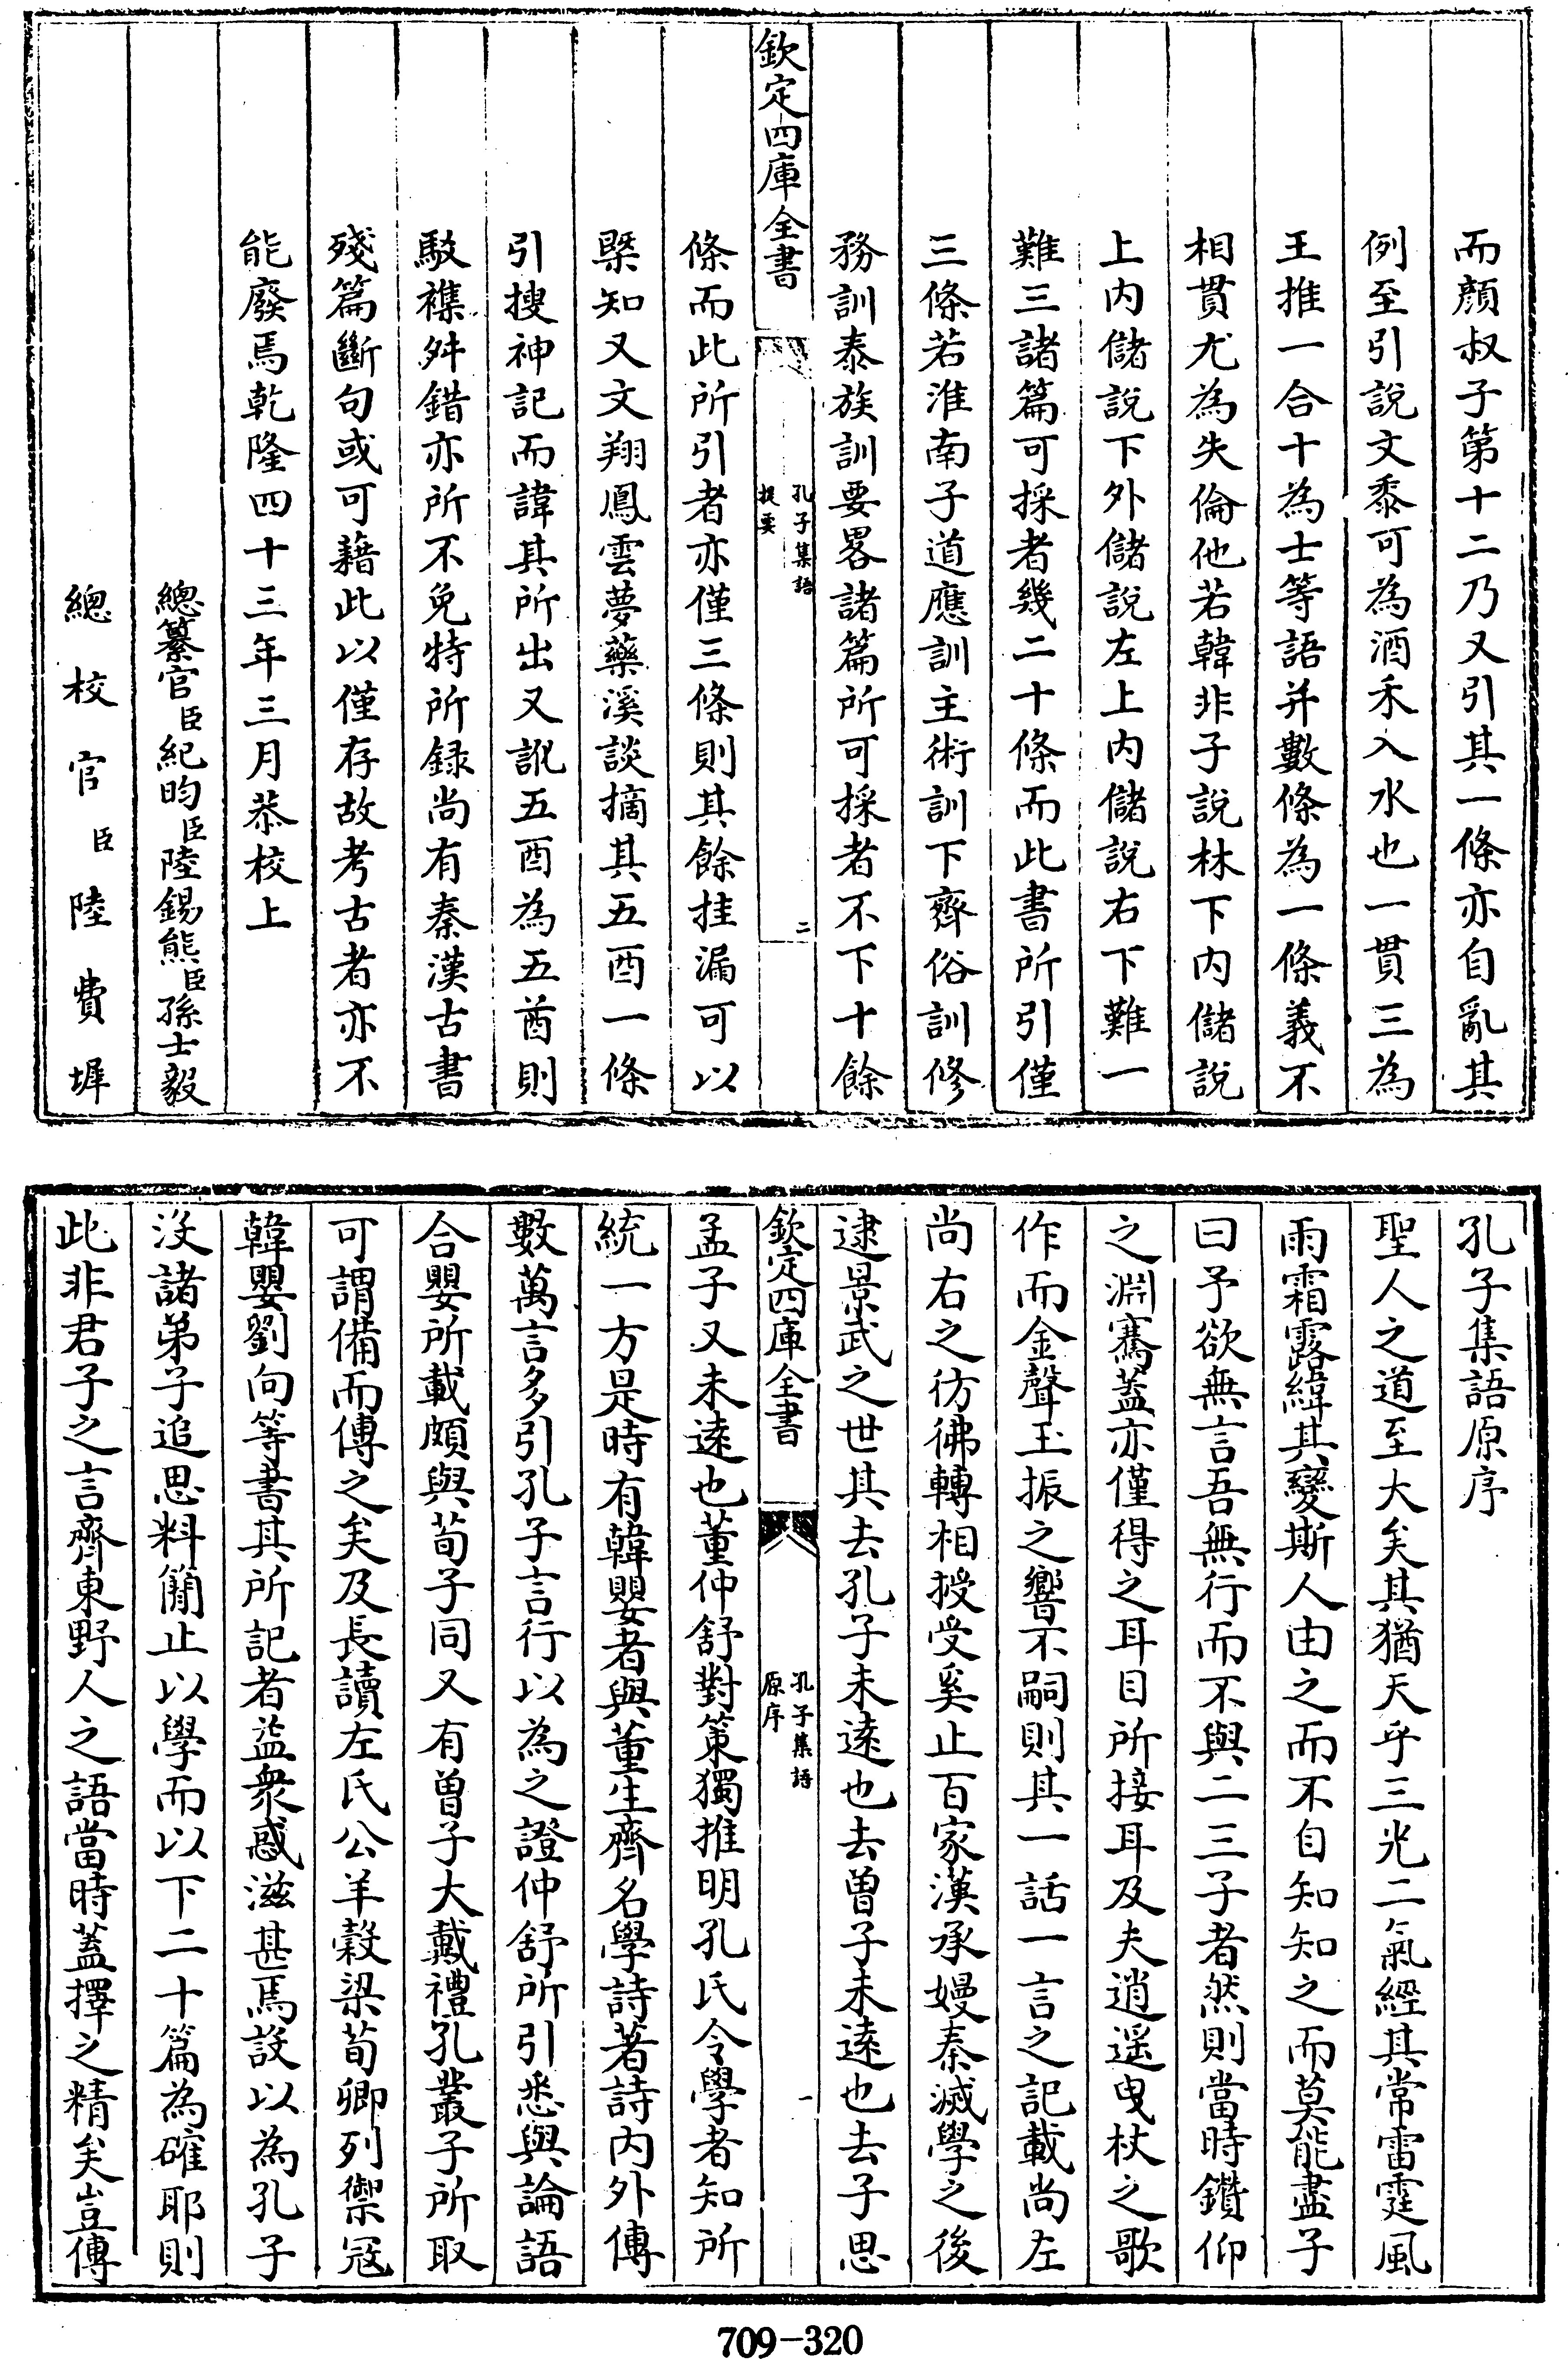 而顏叔子第十二乃又引其一條亦自亂其
例至引說文黍可為酒禾入水也一貫三為
王推一合十為士等語并數條為一條義不
相貫尤為失倫他若韓非子說林下內儲說
上內儲說下外儲說左上內儲說右下難一
難三諸篇可採者幾二十條而此書所引僅
三條若淮南子道應訓主術訓下齊俗訓修
務訓泰族訓要畧諸篇所可採者不下十餘
欽定四庫全書
孔子集語
提要
二
條而此所引者亦僅三條則其餘挂漏可以
槩知又文翔鳳雲夢藥溪談摘其五酉一條
引搜神記而諱其所出又訛五酉為五酋則
駁襍舛錯亦所不免特所録尚有秦漢古書
殘篇斷句或可藉此以僅存故考古者亦不
能廢焉乾隆四十三年三月恭校上
總纂官臣紀昀臣陸錫熊臣孫士毅
總校官臣陸費墀
孔子集語原序
聖人之道至大矣其猶天乎三光二氣經其常雷霆風
雨霜露緯其變斯人由之而不自知知之而莫能盡子
曰予欲無言吾無行而不與二三子者然則當時鑽仰
之淵騫蓋亦僅得之耳目所接耳及夫逍遥曳杖之歌
作而金聲玉振之響不嗣則其一話一言之記載尚左
尚右之彷彿轉相授受奚止百家漢承嫚秦滅學之後
逮景武之世其去孔子未逺也去曽子未逺也去子思
欽定四庫全書
孔子集語
原序
一
孟子又未逺也董仲舒對策獨推明孔氏令學者知所
統一方是時有韓嬰者與董生齊名學詩著詩內外傳
數萬言多引孔子言行以為之證仲舒所引悉與論語
合嬰所載頗與荀子同又有曽子大戴禮孔叢子所取
可謂備而傳之矣及長讀左氏公羊穀梁荀卿列禦冦
韓嬰劉向等書其所記者益衆惑滋甚焉設以為孔子
沒諸弟子追思料簡止以學而以下二十篇為確耶則
此非君子之言齊東野人之語當時蓋擇之精矣豈傳
709-320